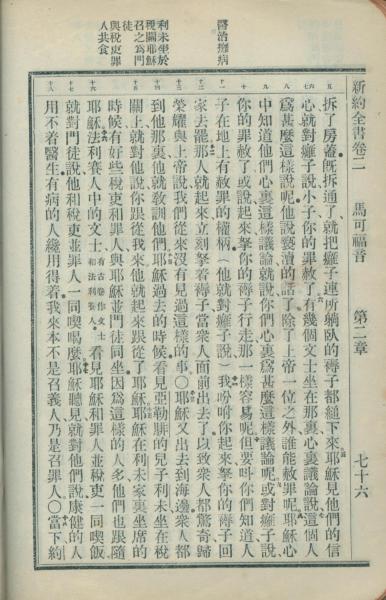 新約全書卷二　馬可福音　第二章　七十六
醫治癱病
利未坐於
稅關耶穌
召之為門
徒
與稅吏罪
人共食
五
六七
八
九
十
十一
十二
十三
十四
十五
十六
十七
十八
拆了房蓋旣拆通了就把癱子連所躺臥的褥子都縋下來耶穌見他們的信
心就對癱子說小子你的罪赦了有幾個文士坐在那裏心裏議論說這個人
爲甚麼這樣說呢他說褻瀆的話了除了上帝一位之外誰能赦罪呢耶穌心
中知道他們心裏這樣議論就說你們心裏爲甚麼這樣議論呢或對癱子說
你的罪赦了或說起來拏你的褥子行走那一樣容易呢但要叫你們知道人
子在地上有赦罪的權柄(他就對癱子說)我吩咐你起來拏你的褥子回
家去罷那人就起來立刻拏着褥子當衆人面前出去了以致衆人都驚奇歸
榮耀與上帝說我們從來沒有見過這樣的事○耶穌又出去到海邊衆人都
到他那裏他就敎訓他們耶穌過去的時候看見亞勒腓的兒子利未坐在稅
關上就對他說你跟從我來他就起來跟從了耶穌耶穌在利未家裏坐席的
時候有好些稅吏和罪人與耶穌並門徒同坐因爲這樣的人多他們也跟隨
耶穌法利賽人中的文士有古卷作文士和法利賽人看見耶穌和罪人並稅吏一同喫飯
就對門徒說他和稅吏並罪人一同喫喝麼耶穌聽見就對他們說康健的人
用不着醫生有病的人纔用得着我來本不是召義人乃是召罪人○當下約